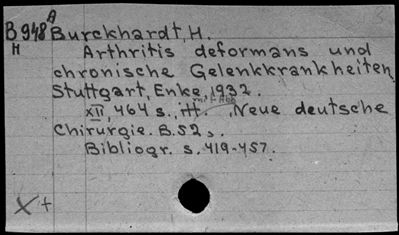 B948 A Burckhardt, H.
H Arthritis deformans und
chronische Gelenkkrankheiten
Stuttgart, Enke, 1932.
XII, 464 s., mit Abb. Neue deutsche
Chirurgie. B. 52.
Bibliogr. s. 419-457.
X+